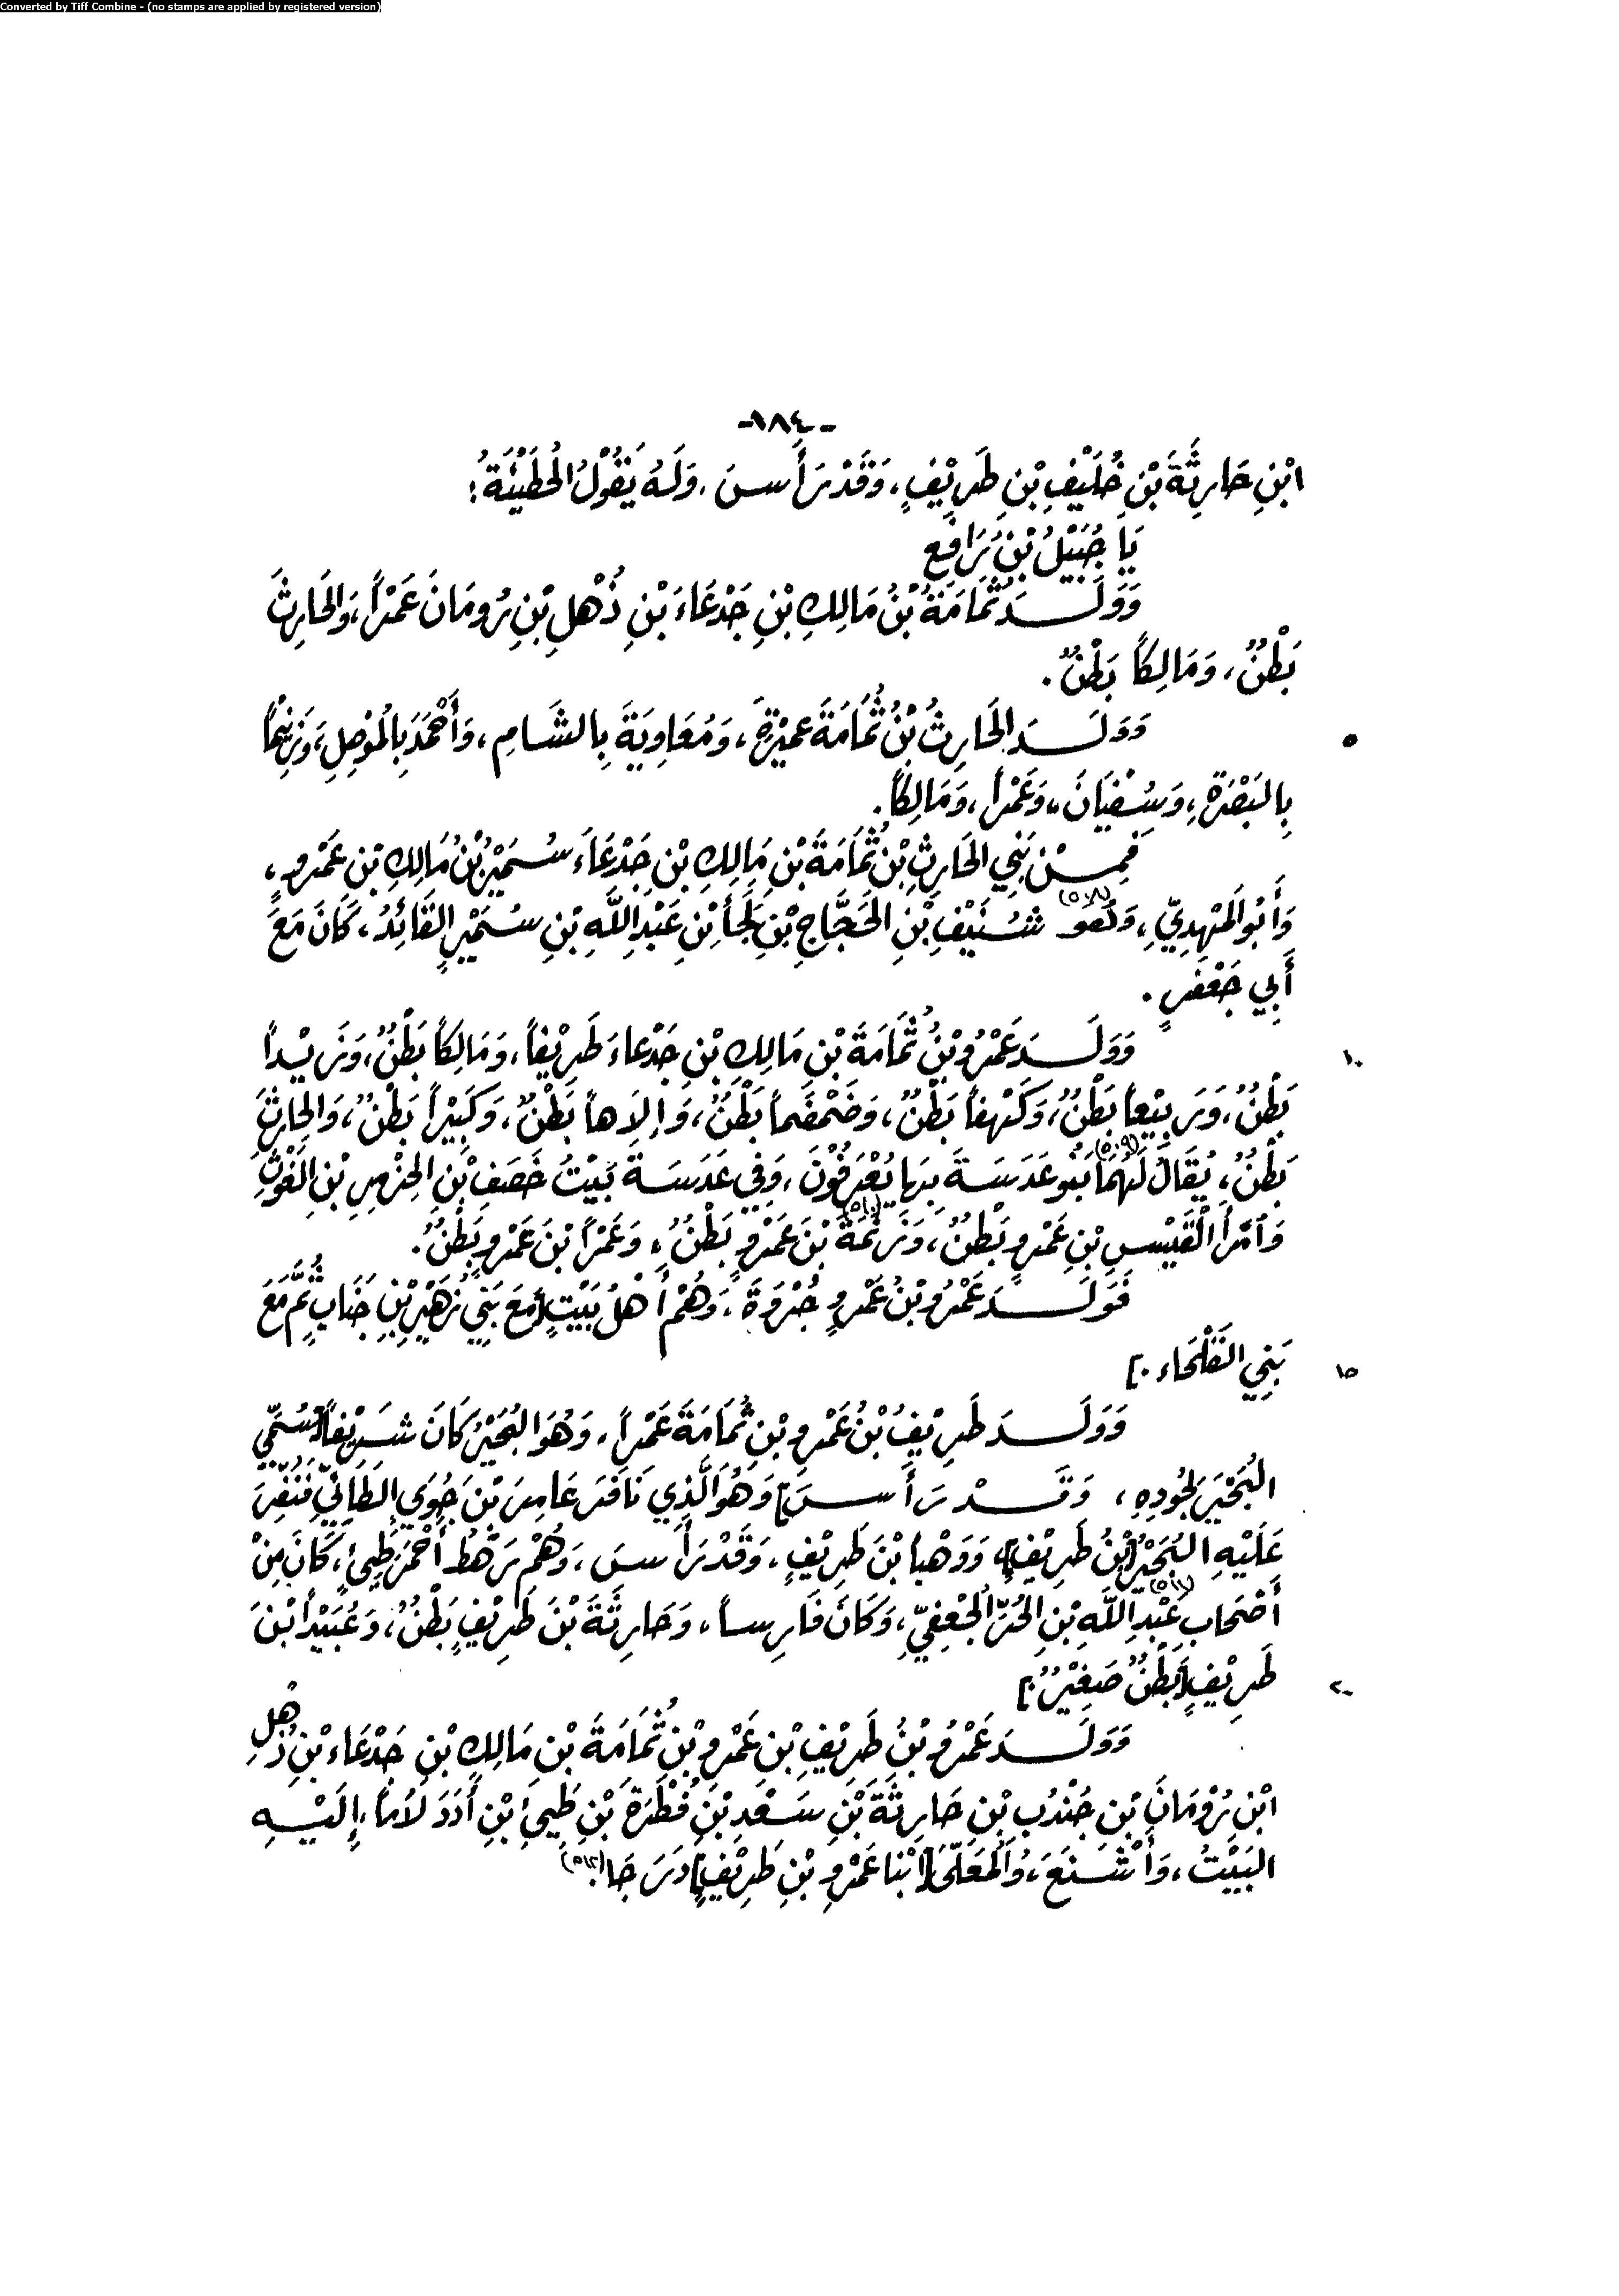 Converted by Tiff Combine - (no stamps are applied by registered version)
-١٨٤-
ابْنِ حَارِثَةَ بْنِ خُلَيْفِ بْنِ طَرِيْفٍ، وَقَدْ رَأَسَ، وَلَهُ يَقُوْلُ الْحُطَيْئَةُ:
يَا جُبَيْلُ بْنُ رَافِعِ
وَوَلَدَ ثُمَامَةُ بْنُ مَالِكِ بْنِ جَدْعَاءَ بْنِ ذُهْلِ بْنِ رُومَانَ عَمْرَاً، وَالْحَارِثَ
بَطْنٌ، وَمَالِكَاً بَطْنٌ.
٥ وَوَلَدَ الْحَارِثُ بْنُ ثُمَامَةَ عَمِيْرَةَ، وَمُعَاوِيَةَ بِالشَّامِ، وَأَحْمَدَ بِالْمُوْصِلِ،
بِالْبَصْرَةِ، وَسُفْيَانَ، وَعَمْرَاً، وَمَالِكَاً.
فَمِنْ بَنِي الْحَارِثِ بْنِ ثُمَامَةَ بْنِ مَالِكِ بْنِ جَدْعَاءَ سُمَيْرُ بْنُ مَالِكِ بْنِ عَمْرٍو،
وَأَبُو الْمَهْدِيِّ، وَهُوَ (٥٠٨) شُنَيْفُ بْنِ الْحَجَّاجِ بْنِ لَجَأِ بْنِ عَبْدِ اللَّهِ بْنِ سُمَيْرٍ الْقَائِدُ، كَانَ مَعَ
أَبِي جَعْفَرٍ.
١٠ وَوَلَدَ عَمْرُو بْنُ ثُمَامَةَ بْنِ مَالِكِ بْنِ جَدْعَاءَ طَرِيْفَاً، وَمَالِكَاً بَطْنٌ، وَزَيْدَاً
بَطْنٌ، وَرَبِيْعَاً بَطْنٌ، وَكَهْفَاً بَطْنٌ، وَضَمْضَمَاً بَطْنٌ، وَإِلَاهَاً بَطْنٌ، وَكَبِيْرَاً بَطْنٌ، وَالْحَارِثَ
بَطْنٌ، يُقَالُ لَهُمَا (٥٠٩) بَنُو عَدَسَةَ بِهَا يُعْرَفُوْنَ، وَفِي عَدَسَةَ بَيْتُ خَصَفِ بْنِ الْحِزْمِرِ بْنِ الْغَوْثِ
وَامْرَأَ الْقَيْسِ بْنِ عَمْرٍو بَطْنٌ، وَزَنَمَةَ (٥١٠) بْنَ عَمْرٍو بَطْنٌ، وَعَمْرَاً بْنَ عَمْرٍو بَطْنٌ.
فَوَلَدَ عَمْرُو بْنُ عَمْرٍو جُرْوَةَ، وَهُمْ أَهْلُ بَيْتٍ [مَعَ بَنِي زُهَيْرِ بْنِ جَنَابٍ ثُمَّ مَعَ
١٥ بَنِي الْفَلْحَاءِ.]
وَوَلَدَ طَرِيْفُ بْنُ عَمْرِو بْنِ ثُمَامَةَ عَمْرَاً، وَهُوَ الْبُحَيْرُ كَانَ شَرِيْفَاً [سُمِّيَ
الْبُحَيْرَ لِجُودِهِ، وَقَدْ رَأَسَ] وَهُوَ الَّذِي نَافَرَ عَامِرَ بْنَ جُوَيٍ الطَّائِيَّ فَنُفِّرَ
عَلَيْهِ الْبُحَيْرُ [بْنُ طَرِيْفٍ]، وَوَهْبَا بْنَ طَرِيْفٍ، وَقَدْ رَأَسَ، وَهُمْ رَهْطُ أَحْمَرَ طَيِئٍ، كَانَ مِنْ
أَصْحَابِ (٥١١) عَبْدِ اللَّهِ بْنِ الْحُرِّ الْجُعْفِيِّ، وَكَانَ فَارِسَاً، وَحَارِثَةَ بْنَ طَرِيْفٍ بَطْنٌ، وَعُبَيْدَاً بْنَ
٢٠ طَرِيْفٍ [بَطْنٌ صَغِيْرٌ.]
وَوَلَدَ عَمْرُو بْنُ طَرِيْفِ بْنِ عَمْرِو بْنِ ثُمَامَةَ بْنِ مَالِكِ بْنِ جَدْعَاءَ بْنِ ذُهْلِ
ابْنِ رُوْمَانَ بْنِ جُنْدُبِ بْنِ خَارِجَةَ بْنِ سَعْدِ بْنِ فُطْرَةَ بْنِ طَيِئِ بْنِ أُدَدَ لَأْمَاً، إِلَيْهِ
الْبَيْتُ، وَأَشْنَعَ، وَالْمُعَلَّى [ابْنَا عَمْرِو بْنِ طَرِيْفٍ] دَرَجَا. (٥١٢)